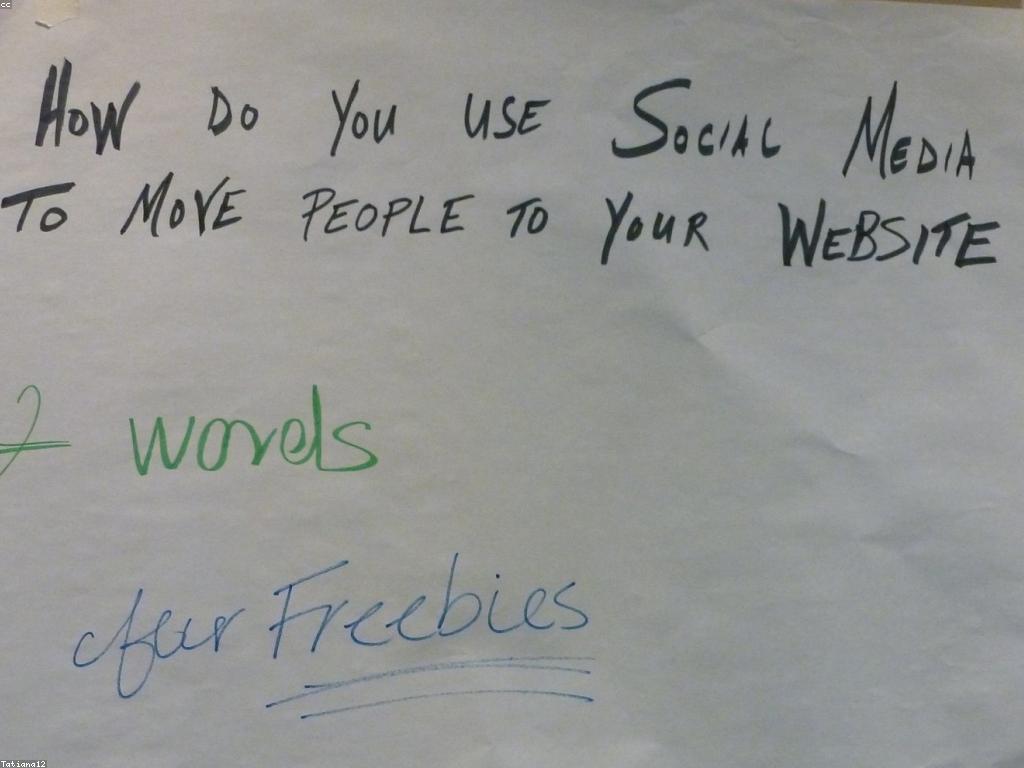 cc
HOW DO YOU USE SOCIAL MEDIA
TO MOVE PEOPLE TO YOUR WEBSITE
2 words
offer Freebies
Tatiana12